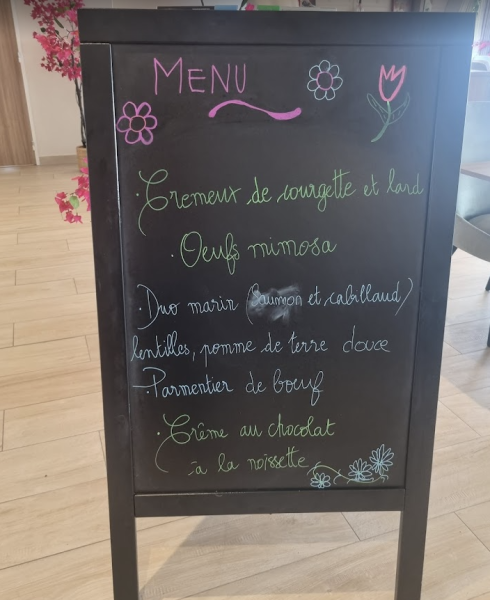 MENU
. Cremeux de courgette et lard
. Oeufs mimosa
. Duo marin (Saumon et cabillaud)
lentilles, pomme de terre douce
. Parmentier de bœuf
. Crème au chocolat
à la noisette